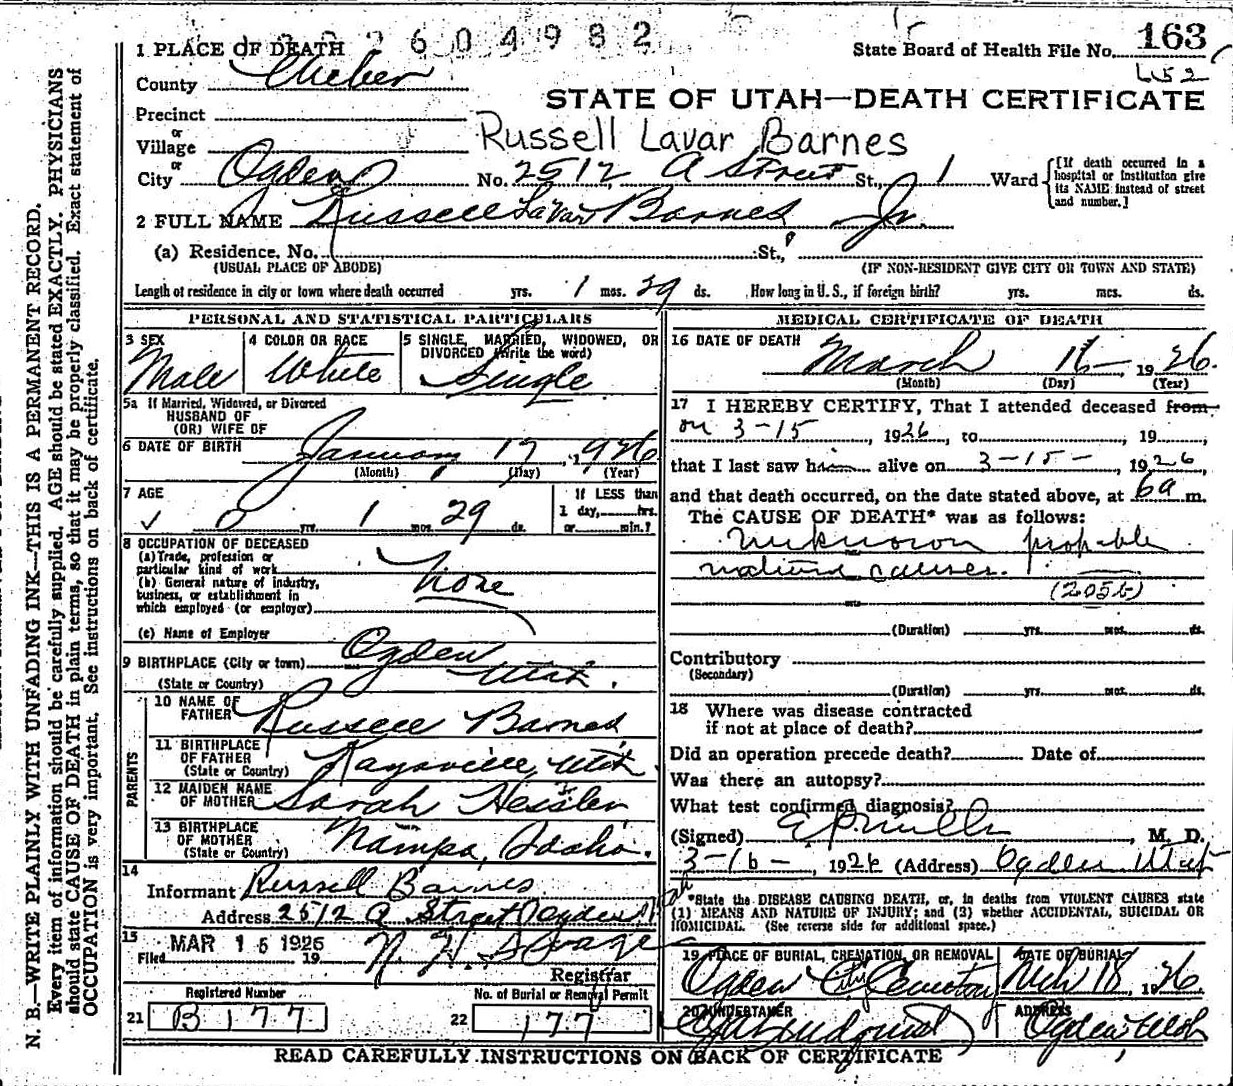 2604982
163
State Board of Health File No.
L52
STATE OF UTAH—DEATH CERTIFICATE
1 PLACE OF DEATH
County Weber
Precinct
or
Village
Russell Lavar Barnes
or
City Ogden No. 2512 A Street St., 1 Ward
[If death occurred in a hospital or institution give its NAME instead of street and number.]
2 FULL NAME Russell LaVar Barnes Jr.
(a) Residence. No. St.,
(USUAL PLACE OF ABODE) (IF NON-RESIDENT GIVE CITY OR TOWN AND STATE)
Length of residence in city or town where death occurred yrs. 1 mos. 29 ds. How long in U. S., if foreign birth? yrs. mos. ds.
PERSONAL AND STATISTICAL PARTICULARS
3 SEX Male
4 COLOR OR RACE White
5 SINGLE, MARRIED, WIDOWED, OR DIVORCED (Write the word) Single
5a If Married, Widowed, or Divorced
HUSBAND OF
(OR) WIFE OF
6 DATE OF BIRTH January 17, 1926
(Month) (Day) (Year)
7 AGE 0 yrs. 1 mos. 29 ds.
If LESS than
1 day, hrs.
or min.?
8 OCCUPATION OF DECEASED
(a) Trade, profession or
particular kind of work None
(b) General nature of industry,
business, or establishment in
which employed (or employer)
(c) Name of Employer
9 BIRTHPLACE (City or town) Ogden
(State or Country) Utah.
PARENTS
10 NAME OF FATHER Russell Barnes
11 BIRTHPLACE OF FATHER (State or Country) Kaysville, Utah
12 MAIDEN NAME OF MOTHER Sarah Heisler
13 BIRTHPLACE OF MOTHER (State or Country) Nampa, Idaho.
14
Informant Russell Barnes
Address 2512 A Street Ogden Utah
15
Filed MAR 16 1926 19
Registrar
Registered Number
21 B 177
No. of Burial or Removal Permit
22 177
MEDICAL CERTIFICATE OF DEATH
16 DATE OF DEATH March 16, 1926.
(Month) (Day) (Year)
17 I HEREBY CERTIFY, That I attended deceased from
on 3-15, 1926, to , 19 ,
that I last saw him alive on 3-15-, 1926,
and that death occurred, on the date stated above, at 6a m.
The CAUSE OF DEATH* was as follows:
Unknown probable
natural causes.
(205b)
(Duration) yrs. mos. ds.
Contributory
(Secondary)
(Duration) yrs. mos. ds.
18 Where was disease contracted
if not at place of death?
Did an operation precede death? Date of
Was there an autopsy?
What test confirmed diagnosis?
(Signed) , M. D.
3-16-, 1926 (Address) Ogden Utah
*State the DISEASE CAUSING DEATH, or, in deaths from VIOLENT CAUSES state
(1) MEANS AND NATURE OF INJURY; and (2) whether ACCIDENTAL, SUICIDAL OR
HOMICIDAL. (See reverse side for additional space.)
19 PLACE OF BURIAL, CREMATION, OR REMOVAL Ogden City Cemetery
DATE OF BURIAL Mch 18, 1926
20 UNDERTAKER
ADDRESS Ogden, Utah
READ CAREFULLY INSTRUCTIONS ON BACK OF CERTIFICATE
N. B.—WRITE PLAINLY WITH UNFADING INK—THIS IS A PERMANENT RECORD.
Every item of information should be carefully supplied. AGE should be stated EXACTLY. PHYSICIANS
should state CAUSE OF DEATH in plain terms, so that it may be properly classified. Exact statement of
OCCUPATION is very important. See instructions on back of certificate.